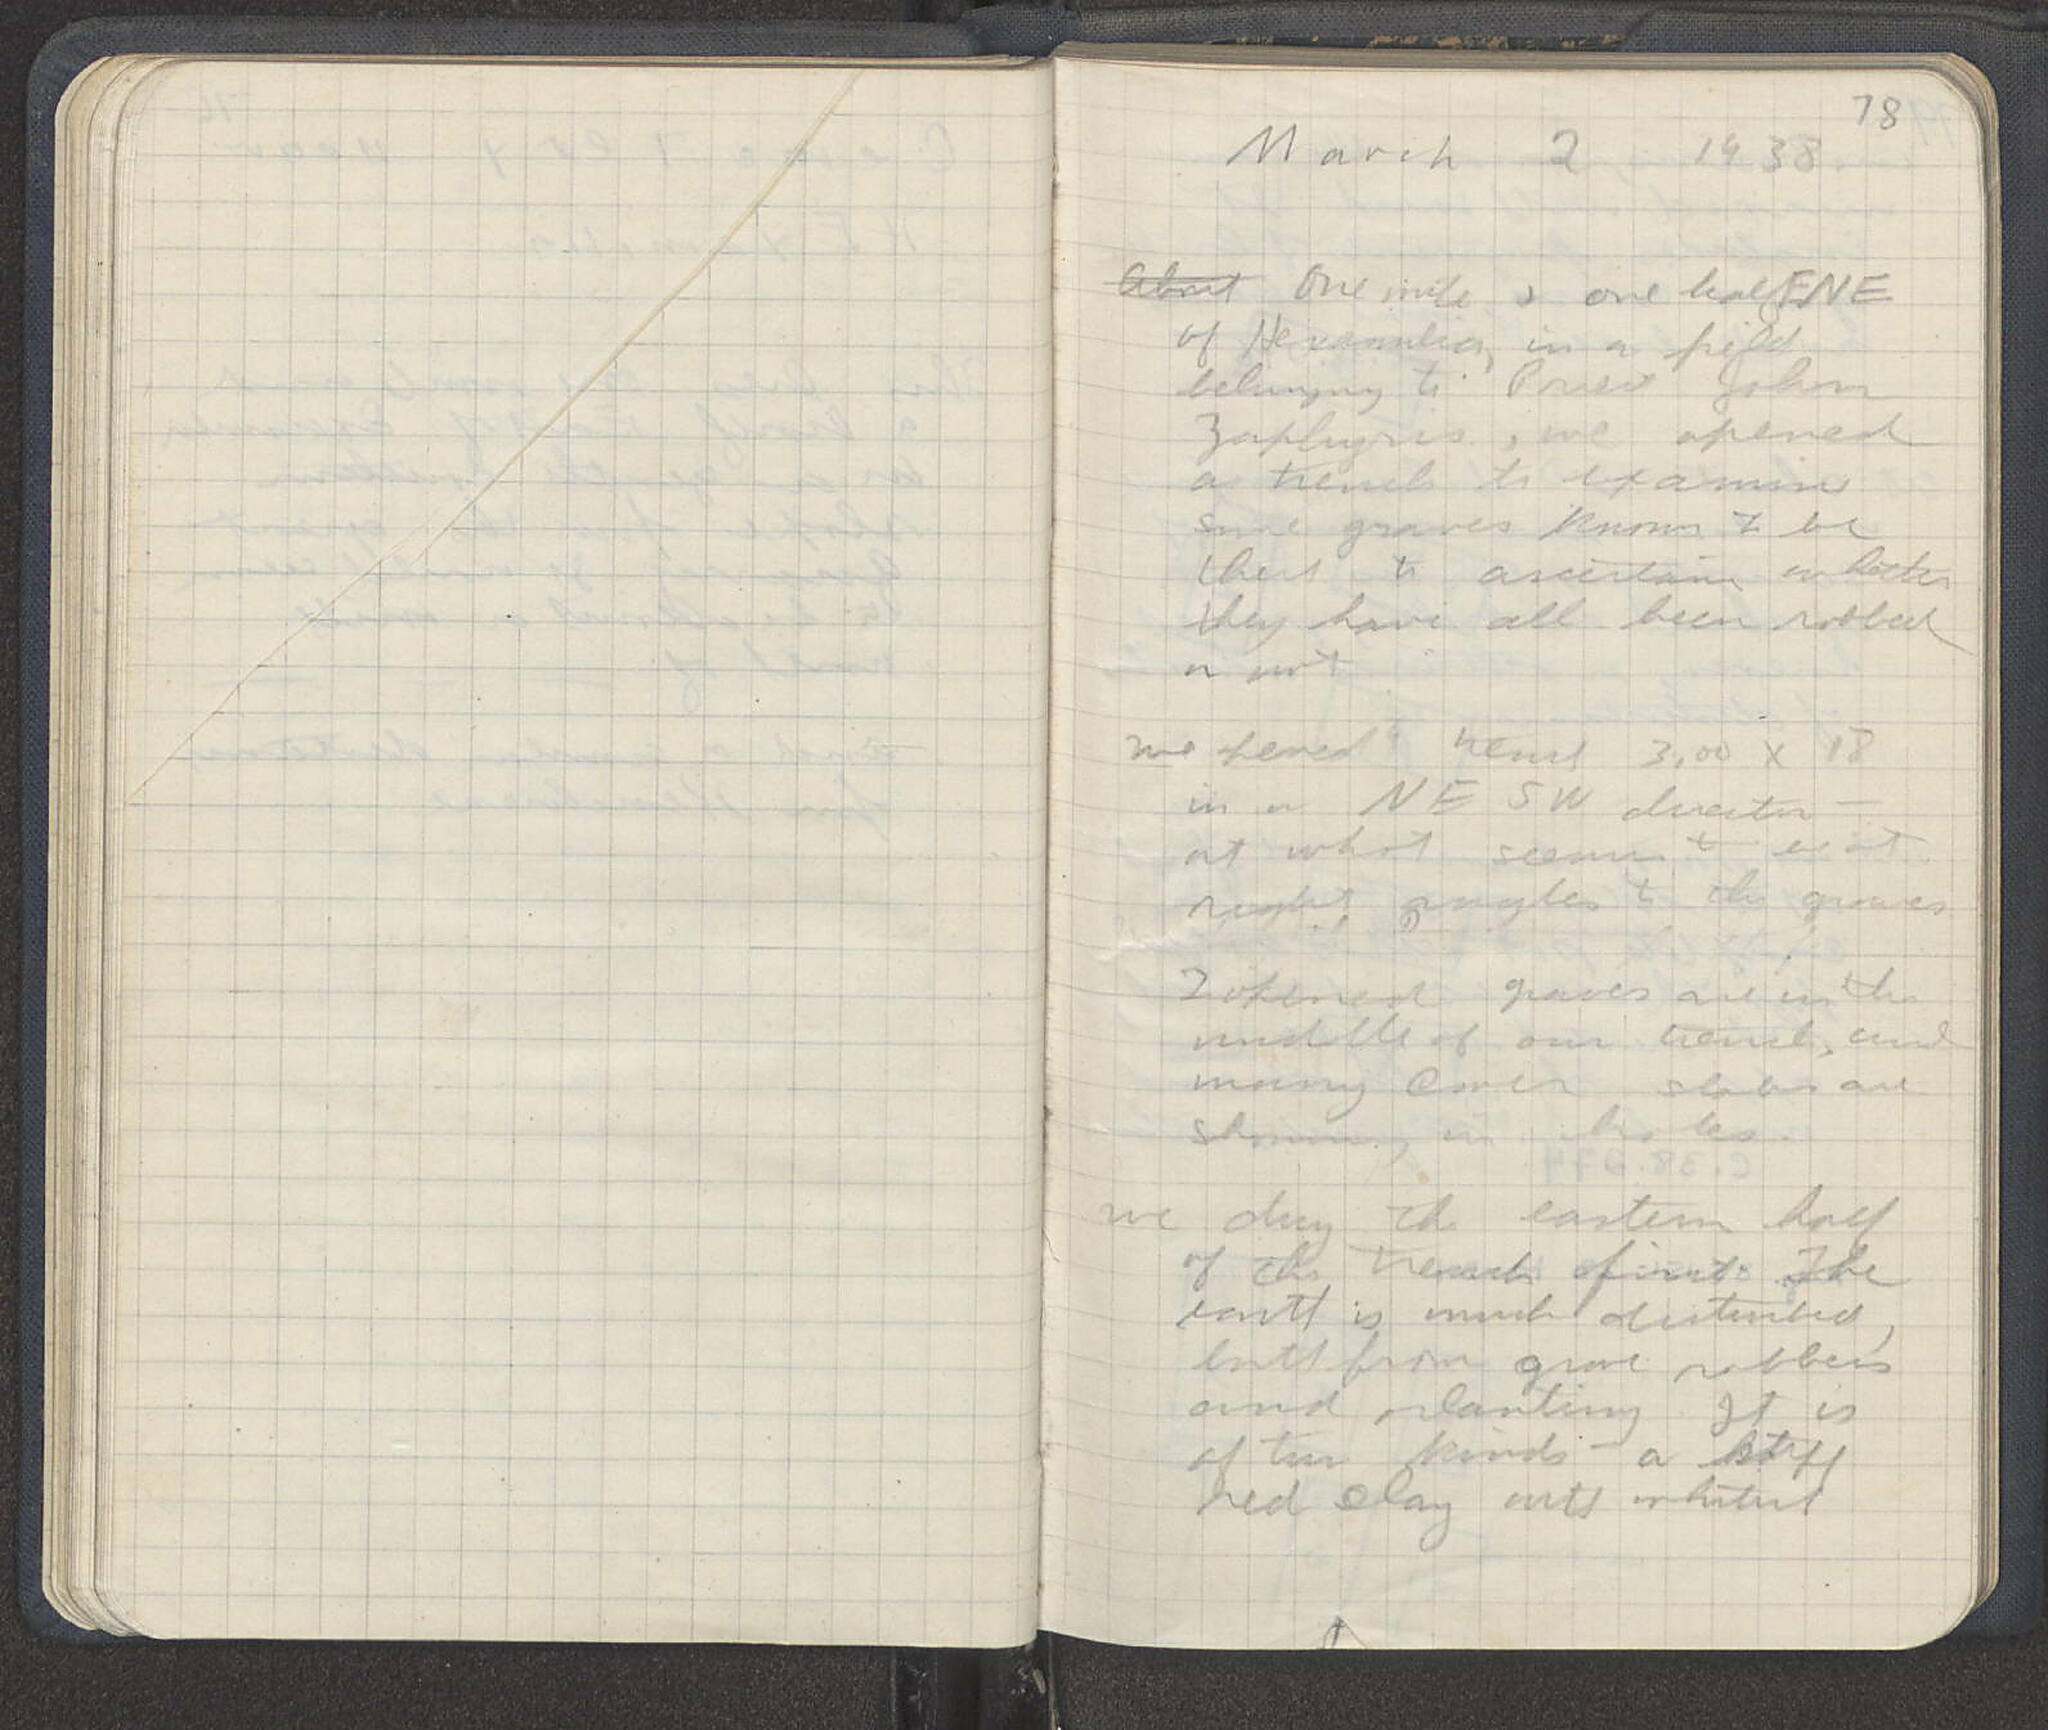 78
March 2 1938.
About One mile & one half ENE
of Hexamilia, in a field
belonging to Priest John
we opened
a trench to examine
some graves known to be
there to ascertain whether
they have all been robbed
or not
we opened a trench 3,00 x 18
in a NE SW direction —
at what seems to be at
right angles to the graves
2 opened graves are in the
middle of our trench, and
many cover slabs are
showing in holes.
we dug the eastern half
of the trench first. The
earth is much disturbed,
both from grave robbers
and planting It is
of two kinds - a stiff
red clay with